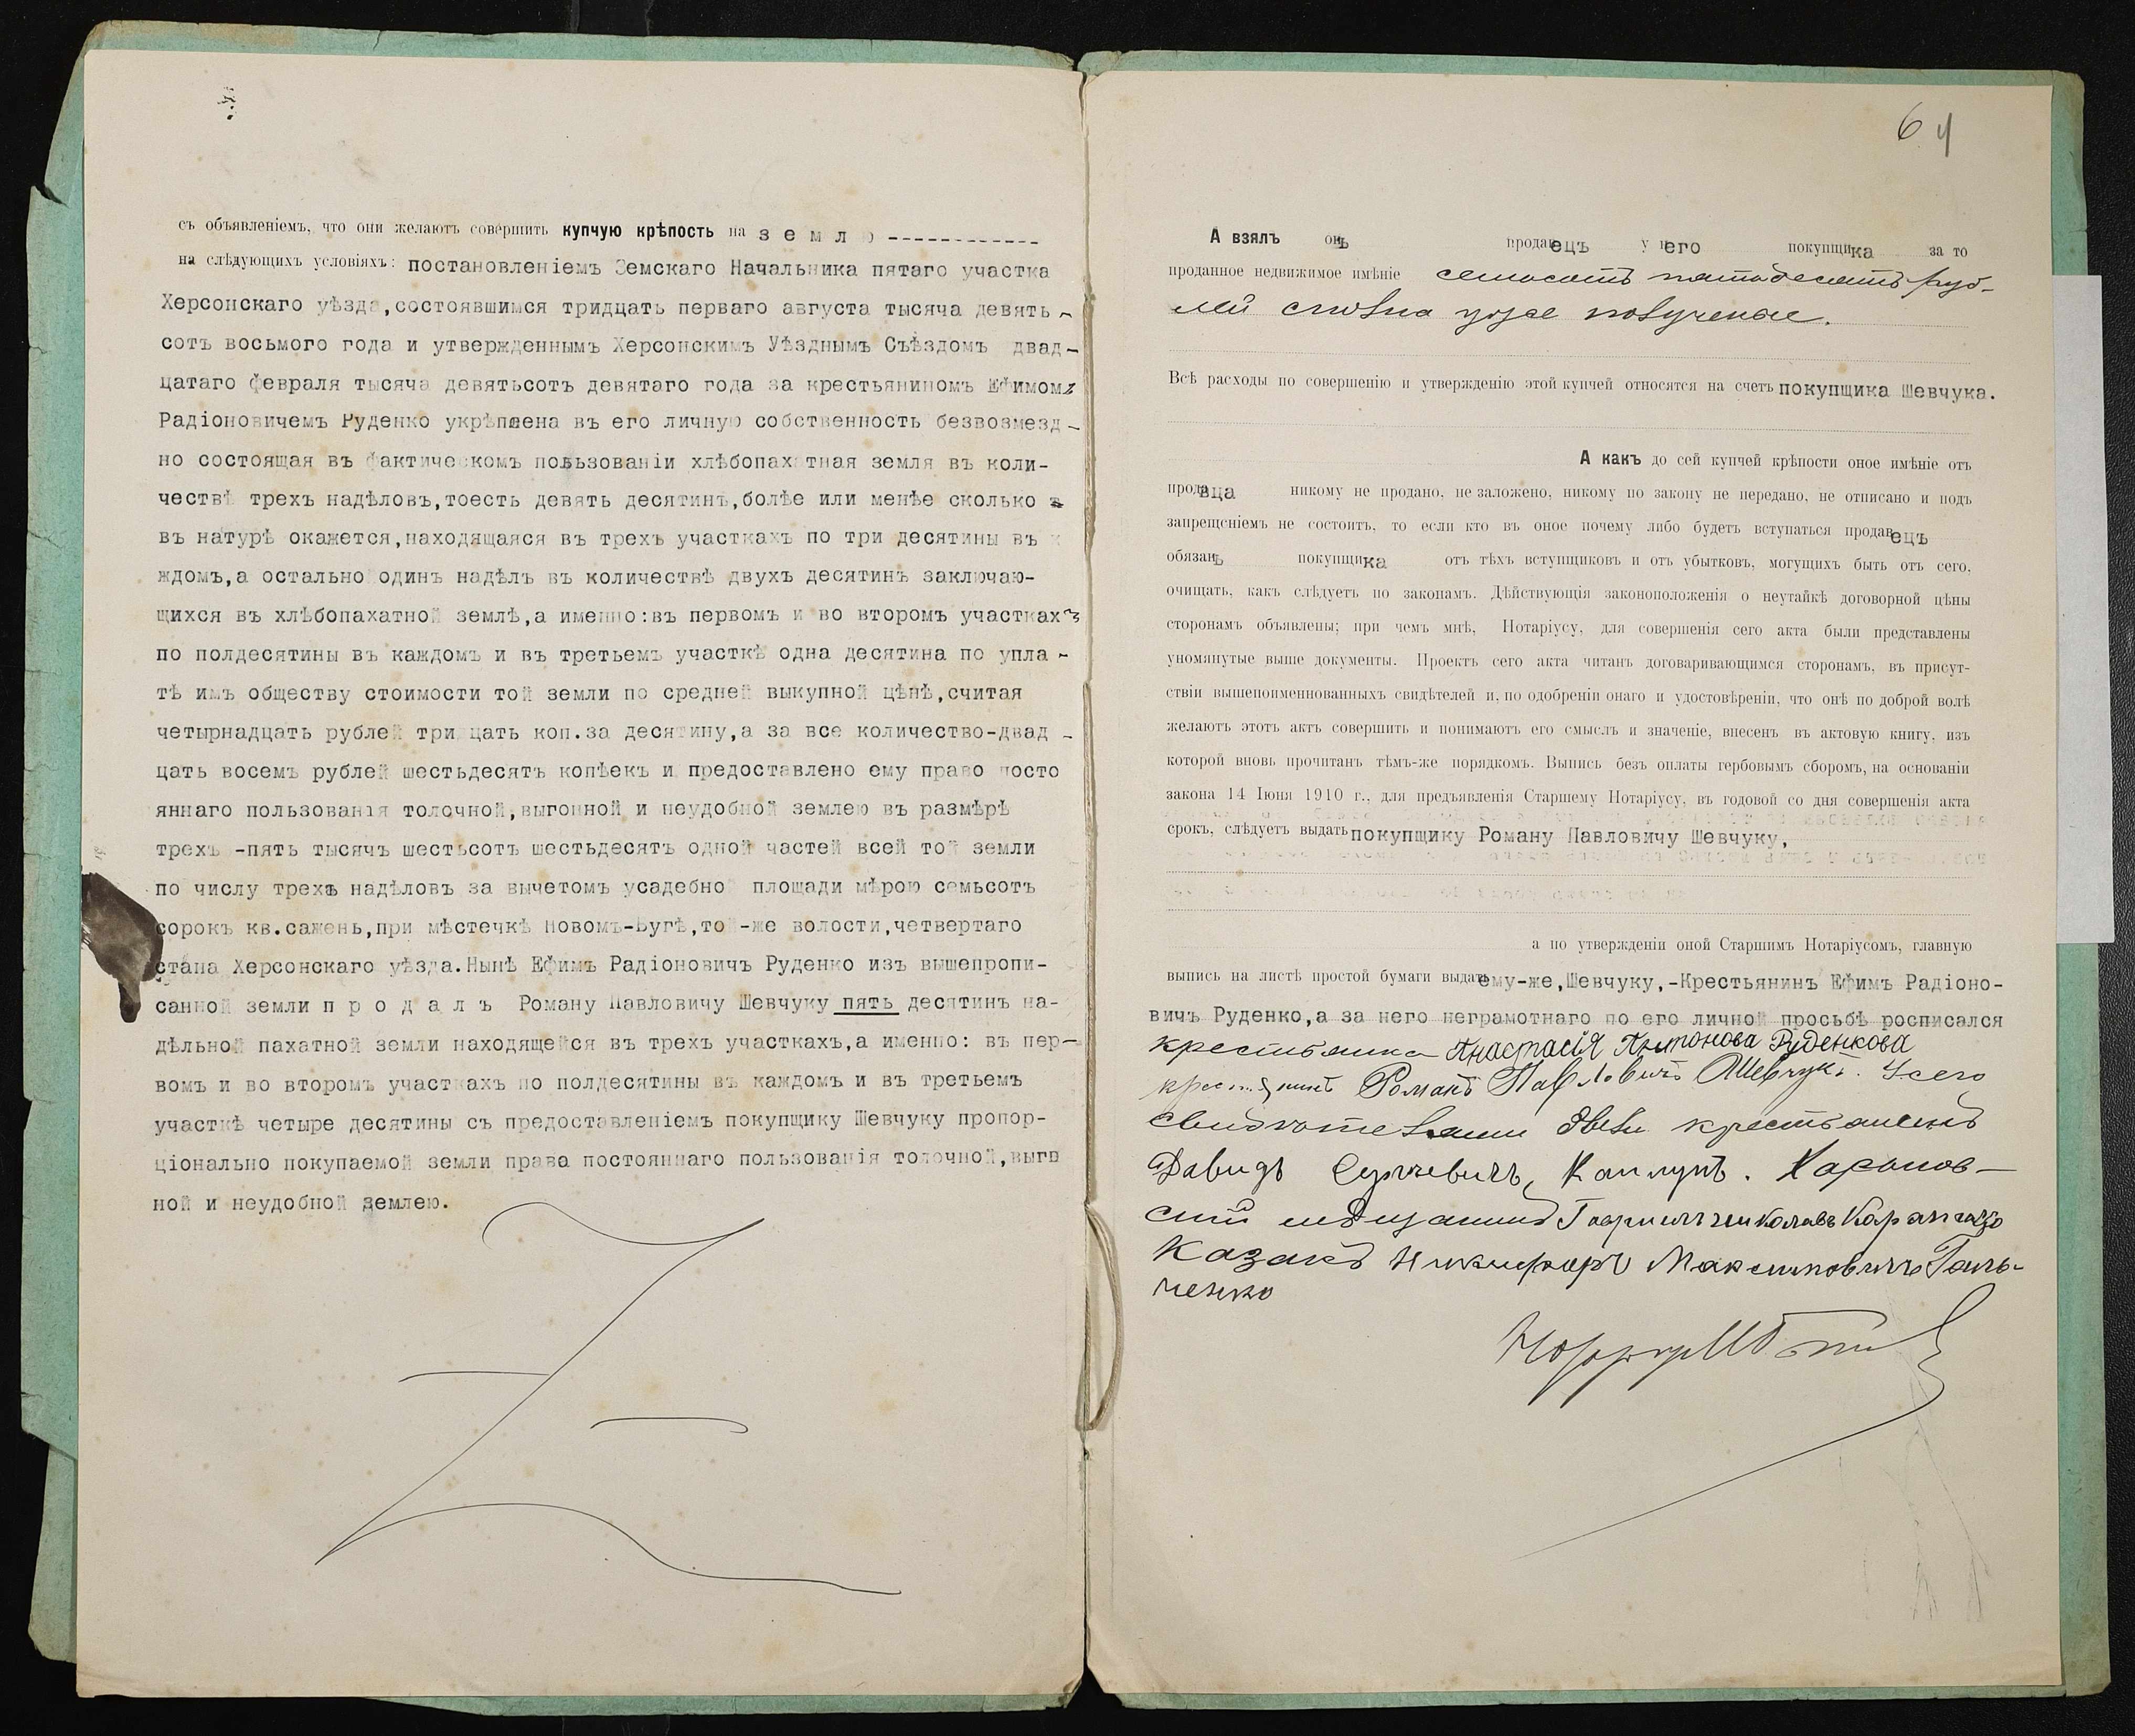 съ объявленіемъ, что они желаютъ совершить купчую крѣпость на з е м л ю ------------
на слѣдующихъ условіяхъ: постановленіемъ Земскаго Начальника пятаго участка
Херсонскаго уѣзда,состоявшимся тридцать перваго августа тысяча девять-
сотъ восьмого года и утвержденнымъ Херсонскимъ Уѣзднымъ Съѣздомъ двад-
цатаго февраля тысяча девятьсотъ девятаго года за крестьяниномъ Ефимомъ
Радіоновичемъ Руденко укрѣплена въ его личную собственность безвозмезд-
но состоящая въ фактическомъ пользованіи хлѣбопахатная земля въ коли-
чествѣ трехъ надѣловъ,тоесть девять десятинъ,болѣе или менѣе сколько
въ натурѣ окажется,находящаяся въ трехъ участкахъ по три десятины въ к
ждомъ,а остальной одинъ надѣлъ въ количествѣ двухъ десятинъ заключаю-
щихся въ хлѣбопахатной землѣ,а именно:въ первомъ и во второмъ участкахъ
по полдесятины въ каждомъ и въ третьемъ участкѣ одна десятина по упла-
тѣ имъ обществу стоимости той земли по средней выкупной цѣнѣ,считая
четырнадцать рублей тридцать коп.за десятину,а за все количество-двад-
цать восемъ рублей шестьдесятъ копѣекъ и предоставлено ему право посто
яннаго пользованія толочной,выгонной и неудобной землею въ размѣрѣ
трехъ -пять тысячъ шестьсотъ шестьдесятъ одной частей всей той земли
по числу трехъ надѣловъ за вычетомъ усадебной площади мѣрою семьсотъ
сорокъ кв.сажень,при мѣстечкѣ Новомъ-Бугѣ,той-же волости,четвертаго
стана Херсонскаго уѣзда.Нынѣ Ефимъ Радіоновичъ Руденко изъ вышепропи-
санной земли п р о д а л ъ Роману Павловичу Шевчуку пять десятинъ на-
дѣльной пахатной земли находящейся въ трехъ участкахъ,а именно: въ пер-
вомъ и во второмъ участкахъ по полдесятины въ каждомъ и въ третьемъ
участкѣ четыре десятины съ предоставленіемъ покупщику Шевчуку пропор-
ціонально покупаемой земли права постояннаго пользованія толочной,выго
ной и неудобной землею.
64
А взялъ онъ продавецъ у него покупщика за то
проданное недвижимое имѣніе семьсотъ пятьдесятъ руб-
лей сполна уже полученые.
Всѣ расходы по совершенію и утвержденію этой купчей относятся на счетъ покупщика Шевчука.
А какъ до сей купчей крѣпости оное имѣніе отъ
продавца никому не продано, не заложено, никому по закону не передано, не отписано и подъ
запрещеніемъ не состоитъ, то если кто въ оное почему либо будетъ вступаться продавецъ
обязанъ покупщика отъ тѣхъ вступщиковъ и отъ убытковъ, могущихъ быть отъ сего,
очищать, какъ слѣдуетъ по законамъ. Дѣйствующія законоположенія о неутайкѣ договорной цѣны
сторонамъ объявлены; при чемъ мнѣ, Нотаріусу, для совершенія сего акта были представлены
упомянутые выше документы. Проектъ сего акта читанъ договаривающимся сторонамъ, въ присут-
ствіи вышепоименнованныхъ свидѣтелей и, по одобреніи онаго и удостовѣреніи, что онѣ по доброй волѣ
желаютъ этотъ актъ совершить и понимаютъ его смыслъ и значеніе, внесенъ въ актовую книгу, изъ
которой вновь прочитанъ тѣмъ-же порядкомъ. Выпись безъ оплаты гербовымъ сборомъ, на основаніи
закона 14 Іюня 1910 г., для предъявленія Старшему Нотаріусу, въ годовой со дня совершенія акта
срокъ, слѣдуетъ выдать покупщику Роману Павловичу Шевчуку,
а по утвержденіи оной Старшимъ Нотаріусомъ, главную
выпись на листѣ простой бумаги выдать ему-же,Шевчуку,-Крестьянинъ Ефимъ Радіоно-
вичъ Руденко,а за него неграмотнаго по его личной просьбѣ росписался
крестьянка Анастасія Антонова Руденкова
крестьянинъ Романъ Павловичъ Шевчукъ. У сего
свидѣтелями были крестьянинъ
Давидъ Сергѣевичъ Каплунъ. Харьков-
скій мѣщанинъ Гавриилъ Николаевъ
Казакъ Никифоръ Максимовичъ Галь-
ченко